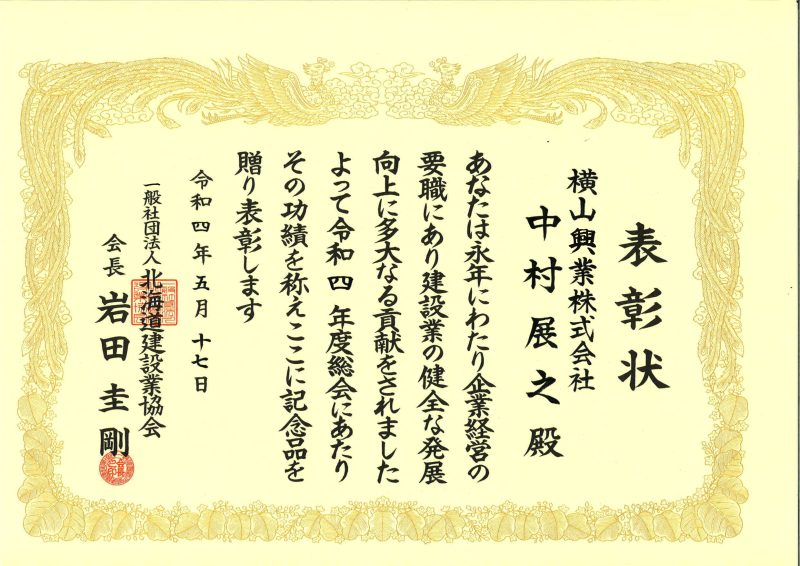 表彰状
横山興業株式会社
中村展之殿
あなたは永年にわたり企業経営の
要職にあり建設業の健全な発展
向上に多大なる貢献をされました
よって令和四年度総会にあたり
その功績を称えここに記念品を
贈り表彰します
令和四年五月十七日
一般社団法人北海道建設業協会
会長岩田圭剛